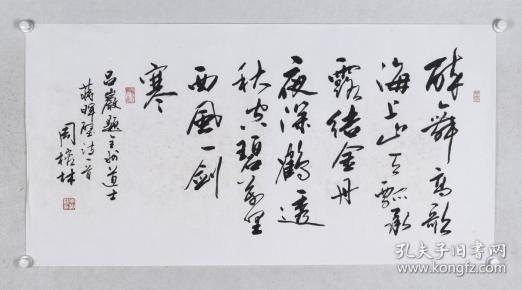 醉舞高歌
海上山天瓢承
露结金丹
夜深鹤透
秋空碧万里
西风一剑
寒
吕嚴题主州道士
蒋晖壁诗一首
周榕林
孔夫子旧书网
www.kongfz.com